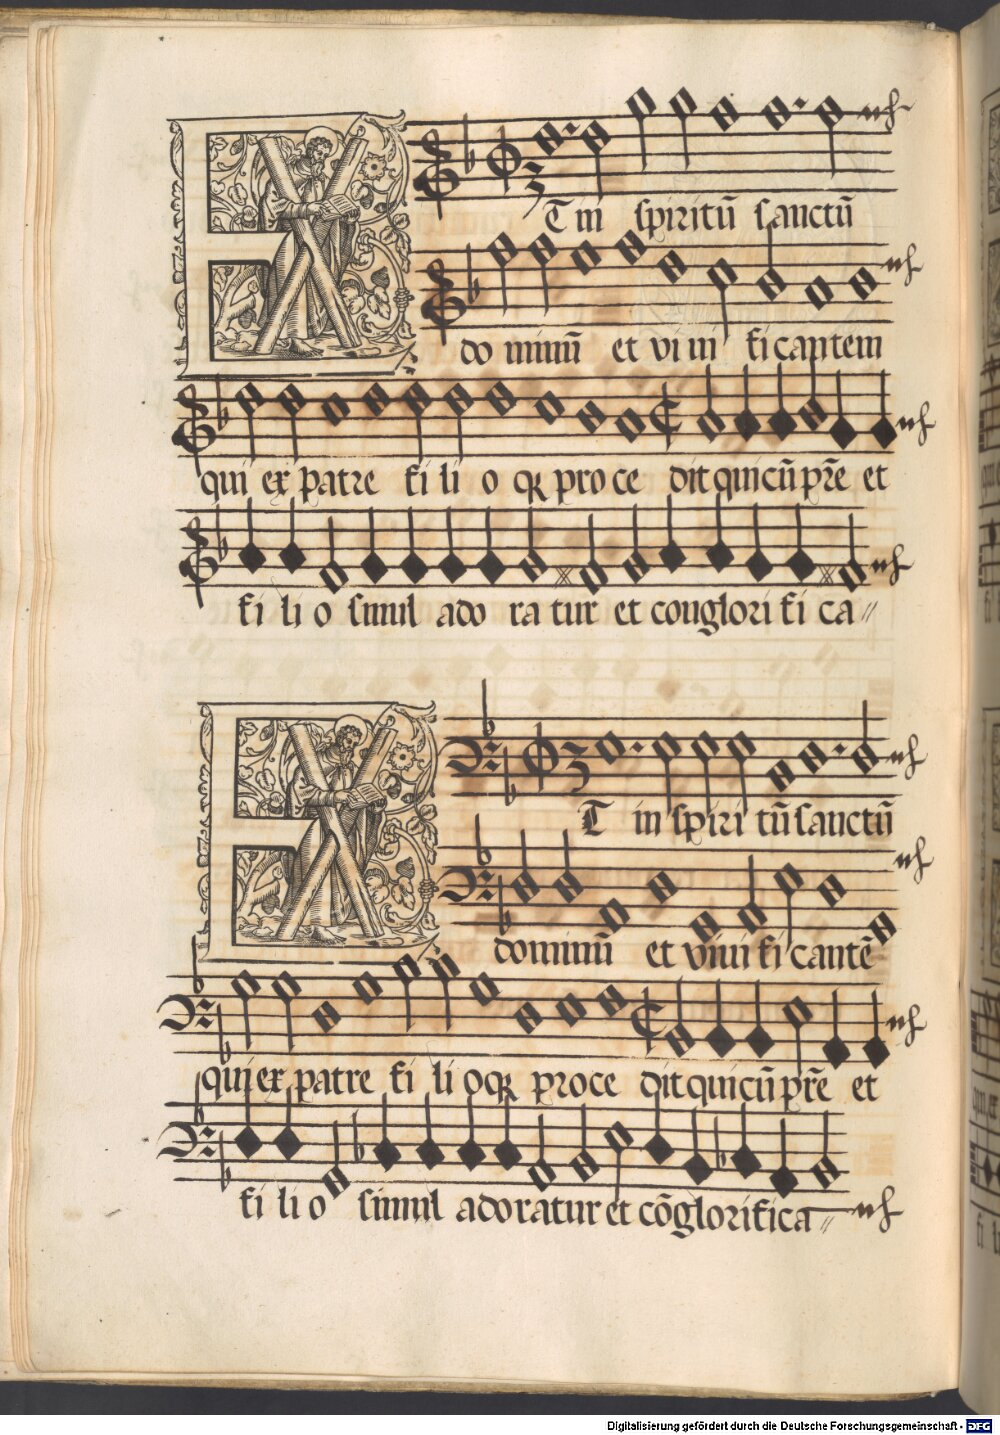 ET in spiritū sanctū
do minū et vi ui fi cantem
qui ex patre fi li o qꝫ pro ce dit qui cū pr̄e et
fi li o simul ado ra tur et conglori fi ca //
ET in spiri tū sanctū
dominū et viui fi cantē
qui ex patre fi li oqꝫ pro ce dit qui cū pr̄e et
fi li o simul adoratur et cōglorifica //
Digitalisierung gefördert durch die Deutsche Forschungsgemeinschaft - DFG